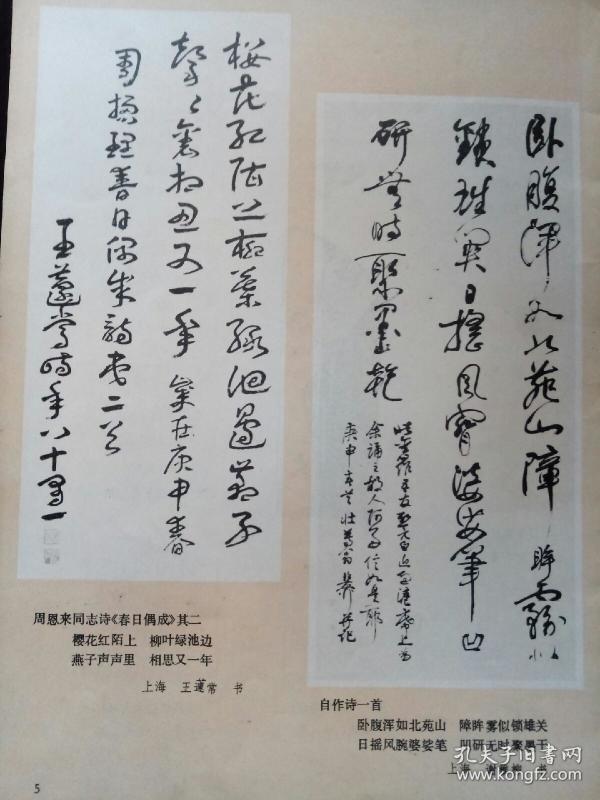 樱花红陌上柳叶绿池边燕子
声々里相思又一年 岁在庚申春
周总理春日偶成诗其二首
王蘧常时年八十又一
卧腹浑如北苑山障眸雾似
锁雄关日摇风腕婆娑笔凹
研无时聚墨干
周恩来同志诗《春日偶成》其二
樱花红陌上 柳叶绿池边
燕子声声里 相思又一年
上海 王蘧常 书
自作诗一首
卧腹浑如北苑山 障眸雾似锁雄关
日摇风腕婆娑笔 凹研无时聚墨干
上海 书
5
孔夫子旧书网
www.kongfz.com